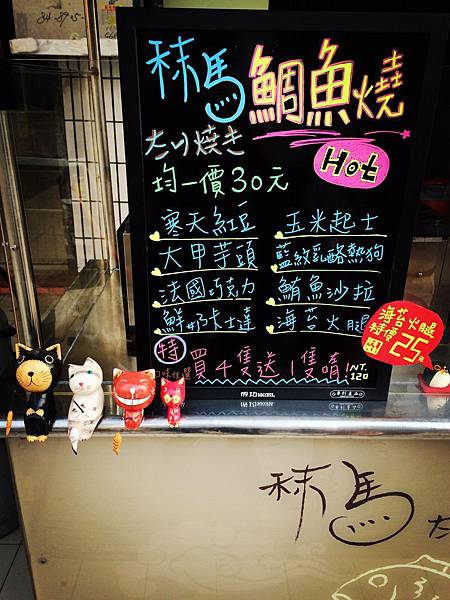 秣馬鯛魚燒
たい焼き
Hot
均一價30元
寒天紅豆
玉米起士
大甲芋頭
藍紋乳酪熱狗
法國巧克力
鮪魚沙拉
鮮奶卡士達
海苔火腿
海苔火腿
特價25元
特 買4隻送1隻唷! NT.120
秣馬
た